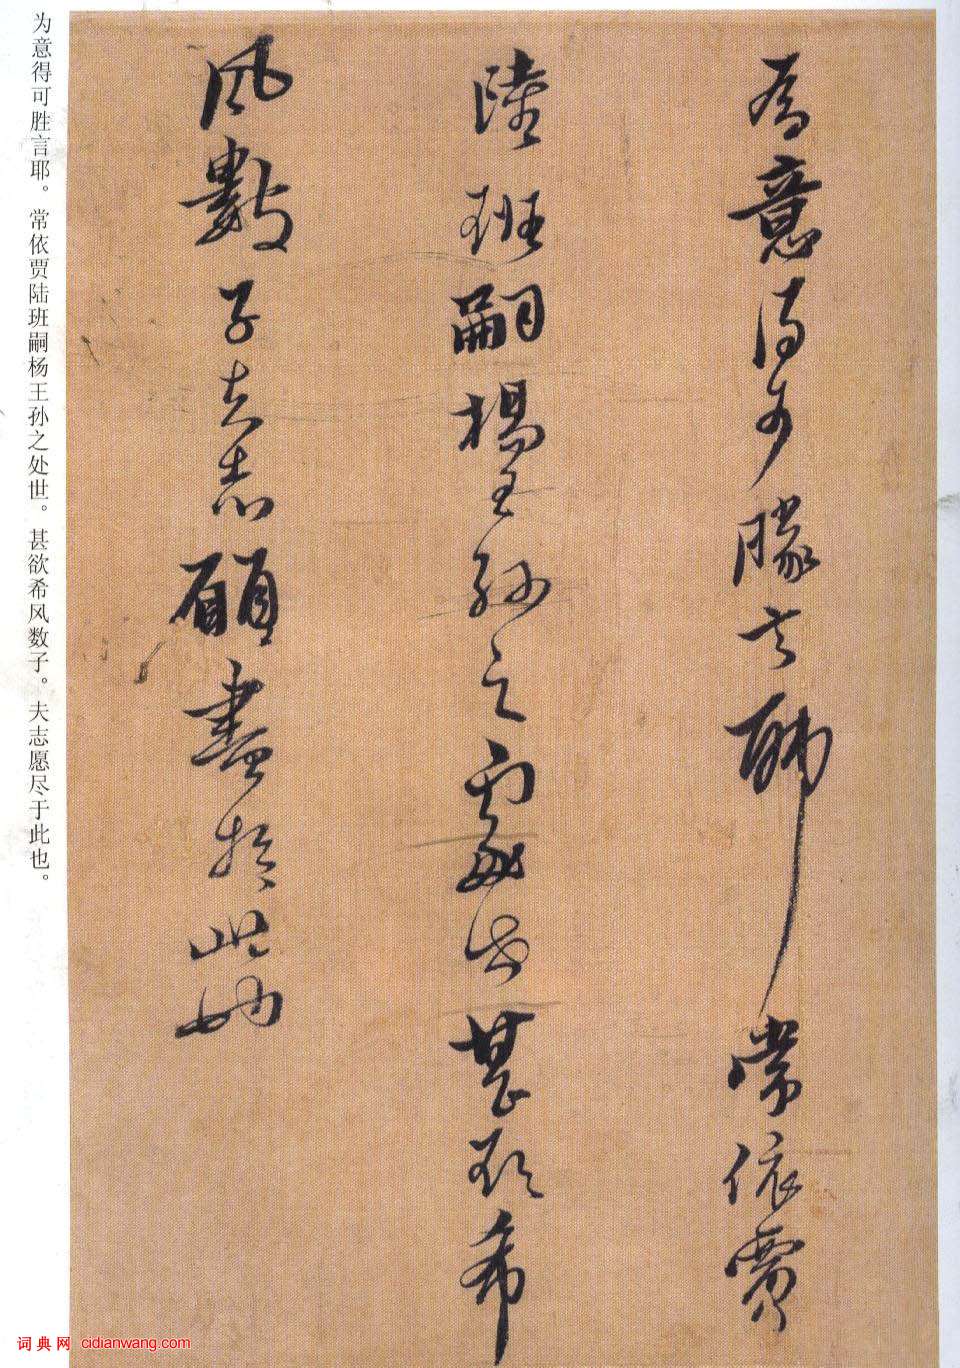 為意得可勝言耶常依賈
陸班嗣楊王孫之處世甚欲希
風數子夫志願盡於此也
为意得可胜言耶。常依贾陆班嗣杨王孙之处世。甚欲希风数子。夫志愿尽于此也。
词典网 cidianwang.com